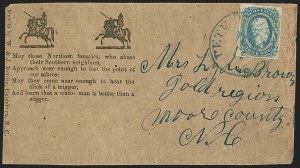 May those Northern fanatics, who abuse
their Southern neighbors,
Approach near enough to feel the point of
our sabres;
May they come near enough to hear the
click of a trigger,
And learn that a white man is better than a
nigger.
PETE
Mrs Lydia Brown
Gold region
Moore County
N.C